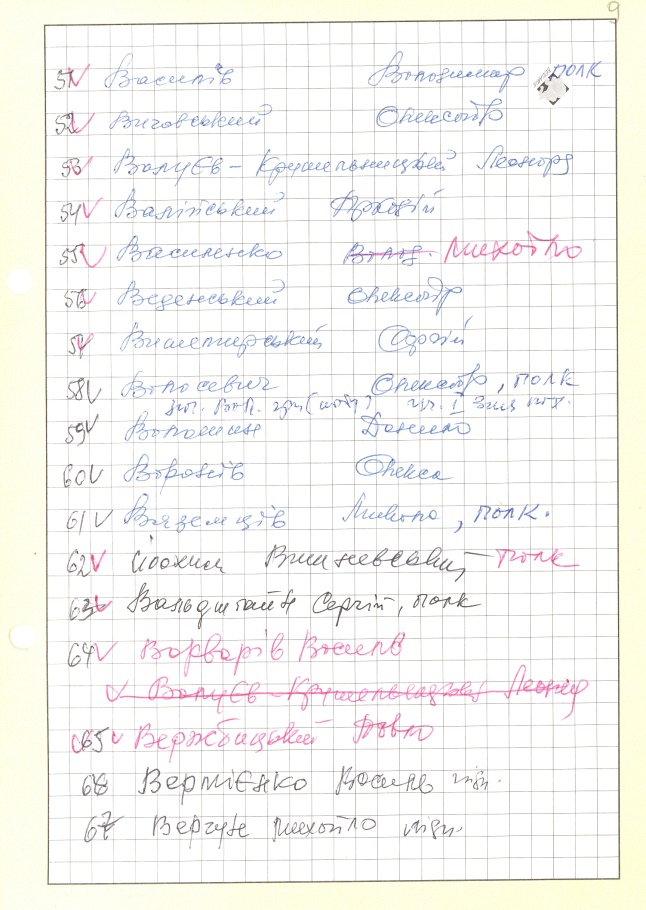 9
51 Василів Володимир полк
52 Виговський Олександр
53 Валуєв - Крушельницький Леонард
54 Валійський Аркадій
55 Василенко Волод. Михайло
56 Веденський Олександр
57 Вишемирський Сергій
58 Волосевич Олександр, полк
59 Волошин Данило
60 Воронів Олекса
61 Вяземців Микола, полк.
62 Йоахим Вишневський полк
63 Вальдштайн Сергій, полк
64 Варварів Василь
Валуєв - Крушельницький Леонід
65 Вержбицький Павло
66 Вермієнко Василь підп.
67 Вергун Михайло підп.